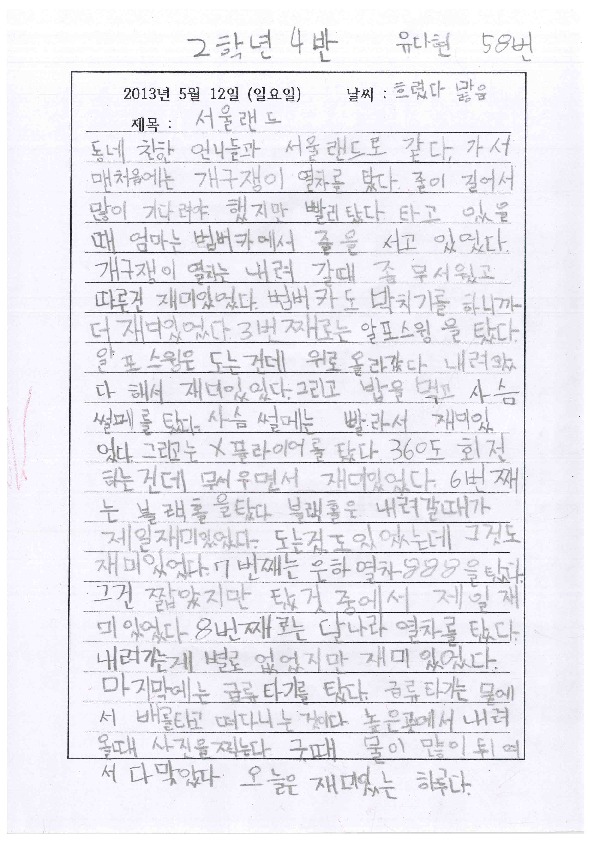 2학년 4반 유다현 58번
2013년 5월 12일 (일요일) 날씨 : 흐렸다 맑음
제목 : 서울랜드
동네 친한 언니들과 서울랜드로 갔다. 가서
맨처음에는 개구쟁이 열차를 탔다. 줄이 길어서
많이 기다려야 했지만 빨리탔다. 타고 있을
때 엄마는 범버카에서 줄을 서고 있었다.
개구쟁이 열차는 내려 갈때 좀 무서웠고
따른건 재미있었다. 범버카도 박치기를 하니까
더 재미있었다. 3번째로는 알포스윙을 탔다.
알포스윙은 도는건데 위로 올라갔다 내려왔
다 해서 재미있었다. 그리고 밥을 먹고 사슴
썰메를 탔다. 사슴 썰메는 빨라서 재미있
었다. 그리고는 X플라이어를 탔다. 360도 회전
하는건데 무서우면서 재미있었다. 6번째
는 블랙홀을탔다 블랙홀은 내려갈때가
제일재미있었다. 도는것도있었는데 그것도
재미있었다. 7번째는 은하열차888을탔다.
그건 짧았지만 탔것 중에서 제일재
미있었다 8번째로는 달나라 열차를 탔다.
내려가는게 별로 없었지만 재미있었다.
마지막에는 급류타기를 탔다. 급류타기는 물에
서 배를타고 떠다니는 것이다 높은곳에서 내려
올때 사진을찍는다 그때 물이 많이 튀여
서 다 맞았다 오늘은 재미있는 하루다.